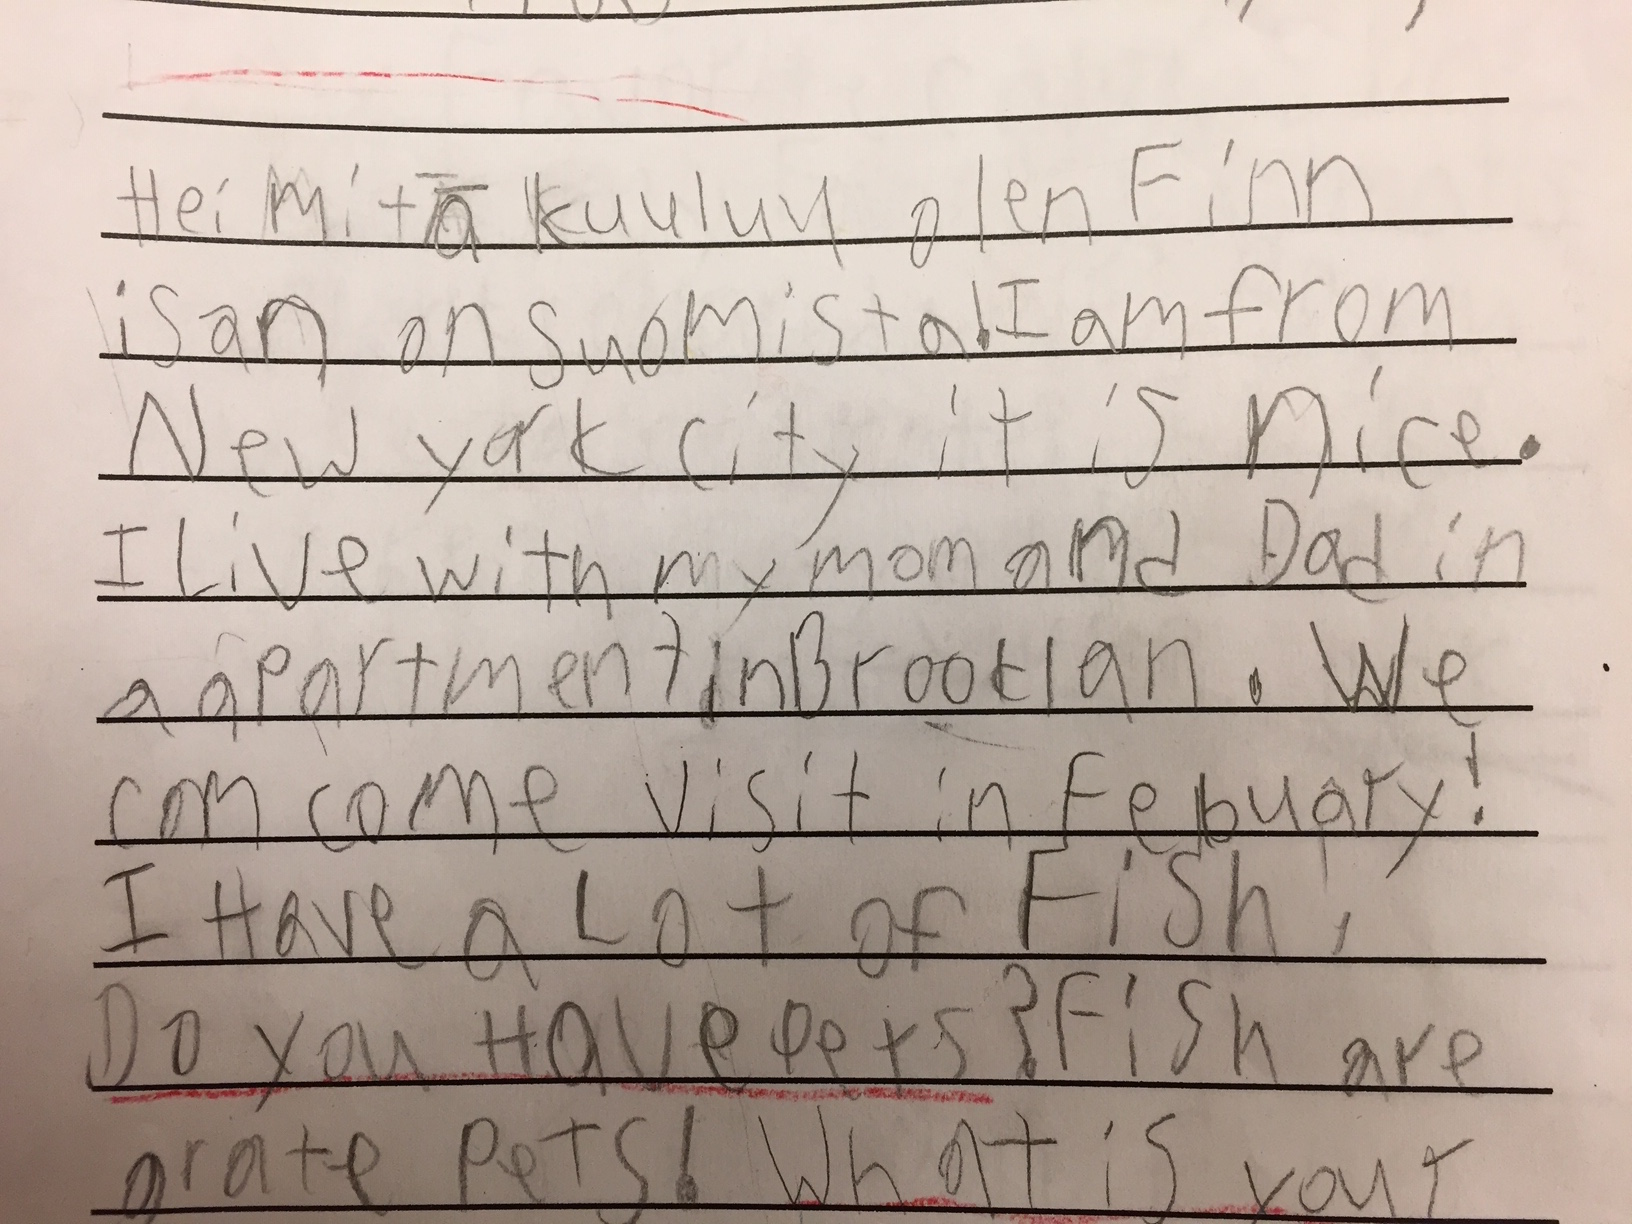 Hei Mitā kuuluu olen Finn
isan on suomista! I am from
New york city it is nice.
I Live with my mom and Dad in
a apartment in Brooklan. We
can come visit in Febuary!
I Have a Lot of Fish,
Do you Have pets? Fish are
grate pets! What is your